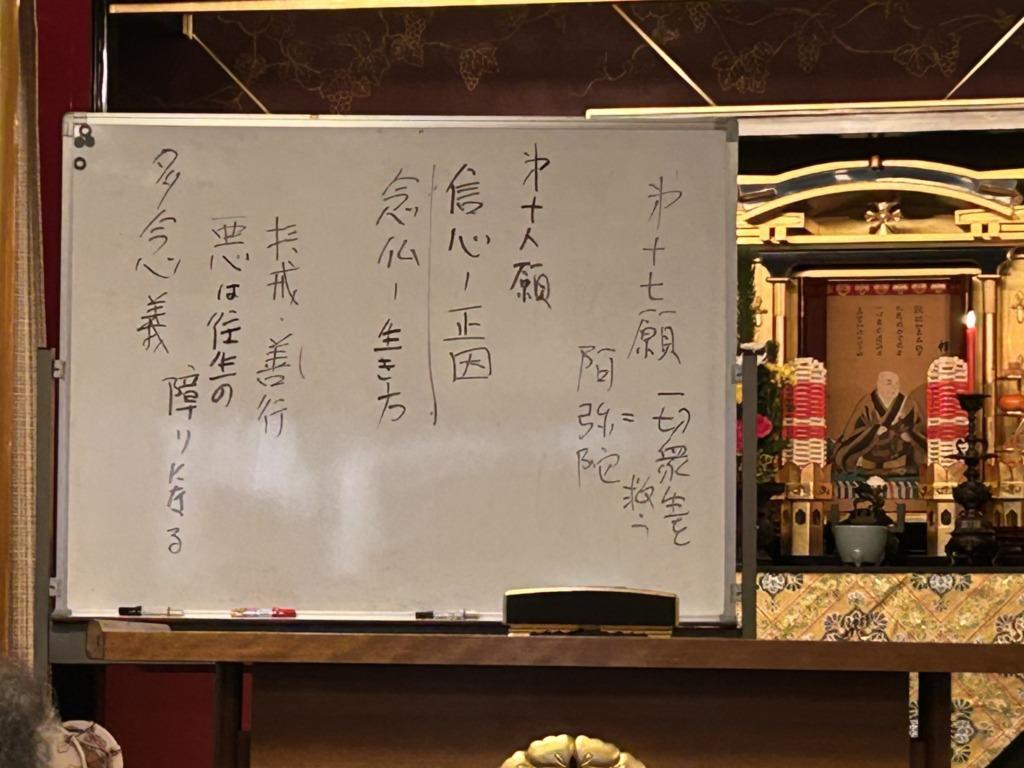 第十七願
一切衆生を
救う
=
阿弥陀
第十八願
信心ー正因
念仏ー生き方
持戒・善行
悪は往生の
障りになる
多念義